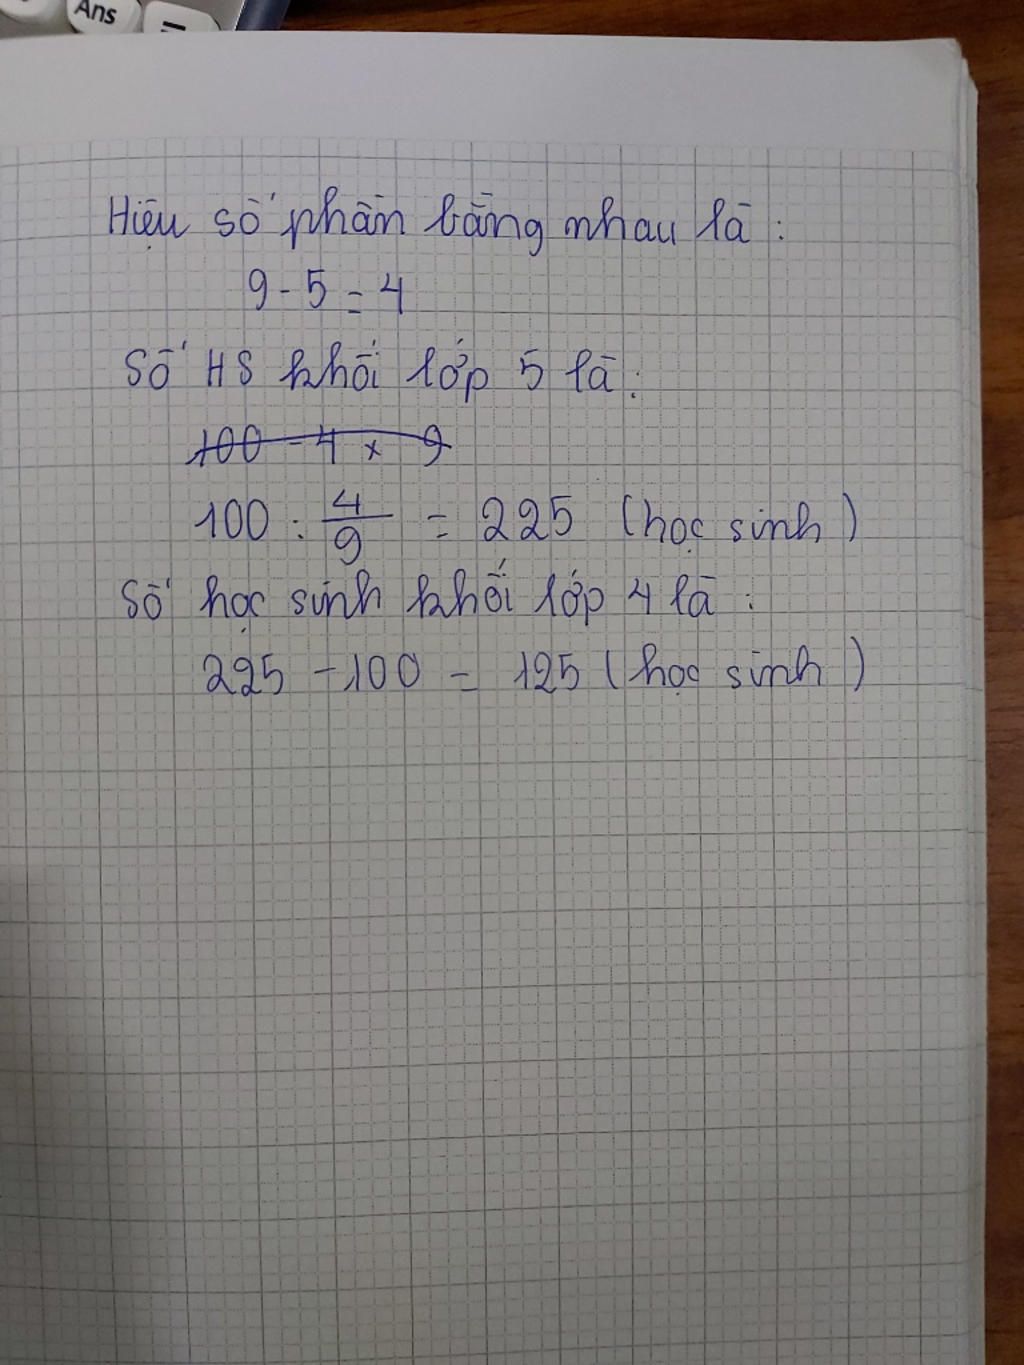 Ans
=
Hiệu số phần bằng nhau là :
9 - 5 = 4
Số HS khối lớp 5 là :
100 - 4 x 9
100 : 4/9 = 225 (học sinh)
Số học sinh khối lớp 4 là :
225 - 100 = 125 (học sinh)